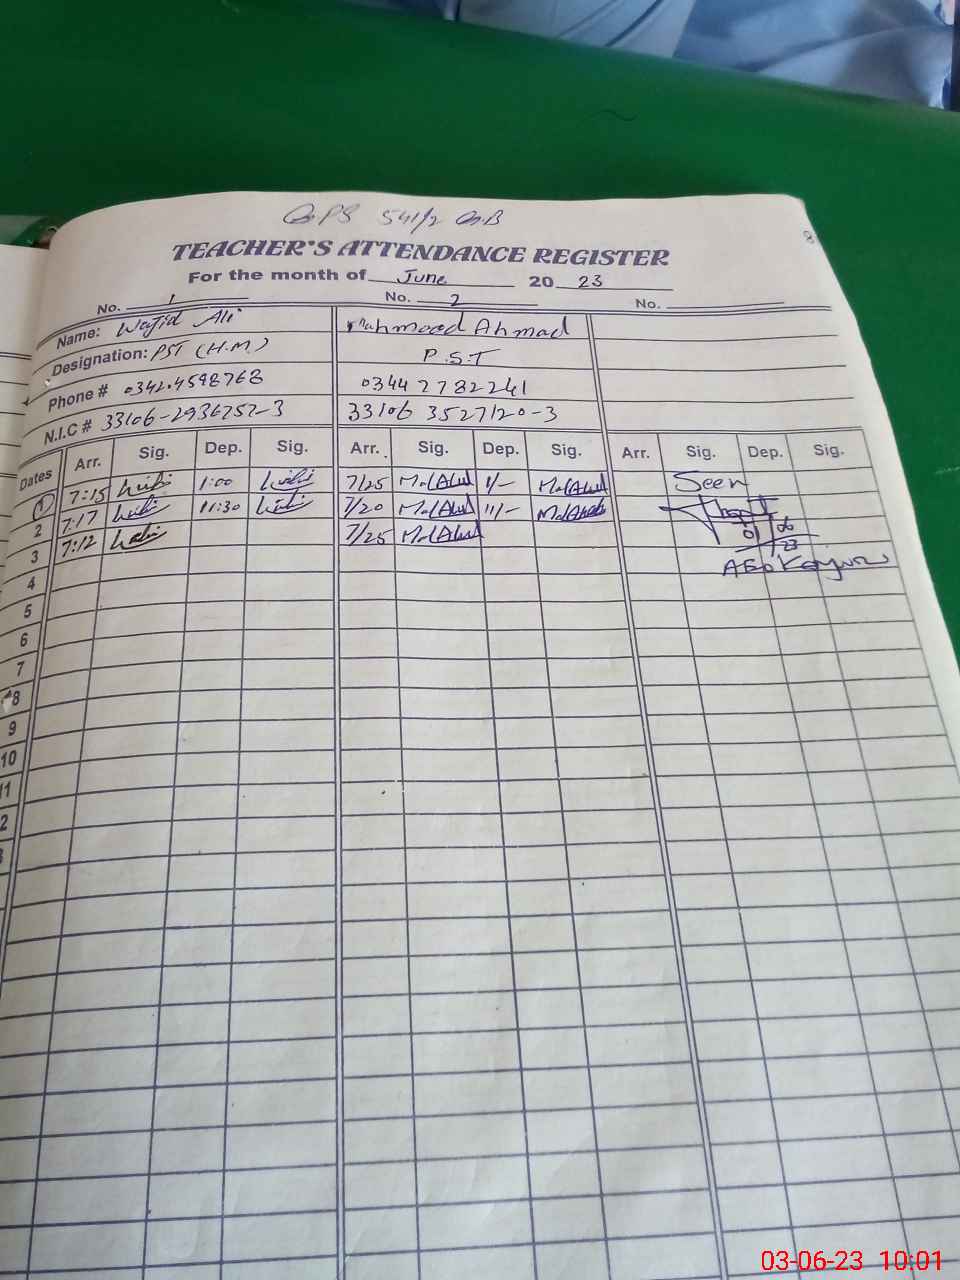 GPS 541/2 GB
TEACHER'S ATTENDANCE REGISTER
For the month of June 20 23
No. 1 No. 2 No.
Name: Wajid Ali Mahmood Ahmad
Designation: PST (H.M.) P.S.T
Phone # 0342.4598768 0344 2782241
N.I.C # 33106-2936757-3 33106 3527120-3
Dates Arr. Sig. Dep. Sig. Arr. Sig. Dep. Sig. Arr. Sig. Dep. Sig.
1 7:15 1:00 7/25 1/- Seen
2 7:17 11:30 7/20 11/-
3 7:12 7/25 01 06 23
4 AEO
5
6
7
8
9
10
11
2
3
8
03-06-23 10:01